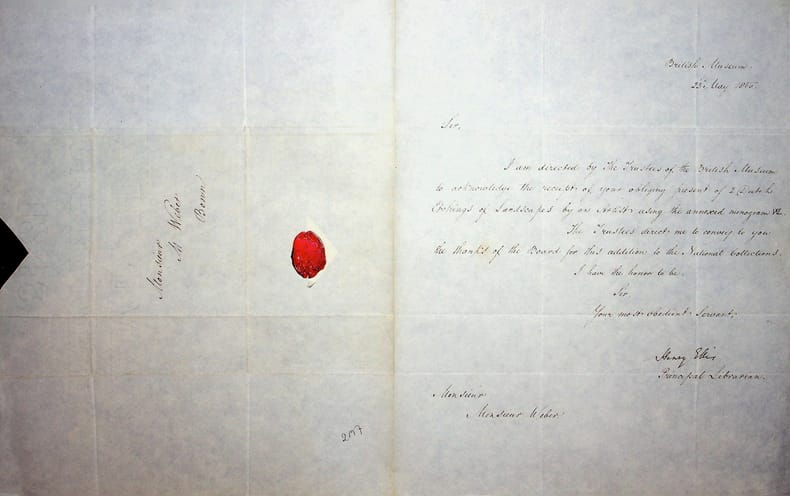 Monsieur
M. Weber
Bonn
217
British Museum
23d May 1855.
Sir,
I am directed by The Trustees of the British Museum
to acknowledge the receipt of your obliging present of 2 Dutch
Etchings of Landscapes by an Artist using the annexed monogram
The Trustees direct me to convey to you
the thanks of the Board for this addition to the National Collections.
I have the honor to be
Sir
Your most obedient Servant,
Henry Ellis
Principal Librarian.
Monsieur
Monsieur Weber